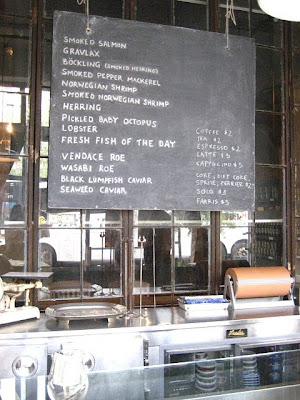 SMOKED SALMON
GRAVLAX
BÖCKLING (SMOKED HERRING)
SMOKED PEPPER MACKEREL
NORWEGIAN SHRIMP
SMOKED NORWEGIAN SHRIMP
HERRING
PICKLED BABY OCTOPUS
LOBSTER
FRESH FISH OF THE DAY
VENDACE ROE
WASABI ROE
BLACK LUMPFISH CAVIAR
SEAWEED CAVIAR
COFFEE $2
TEA $2
ESPRESSO $2
LATTE $3
CAPPUCINO $3
COKE, DIET COKE,
SPRITE, PERRIER $2
SOLO $3
FARRIS $5